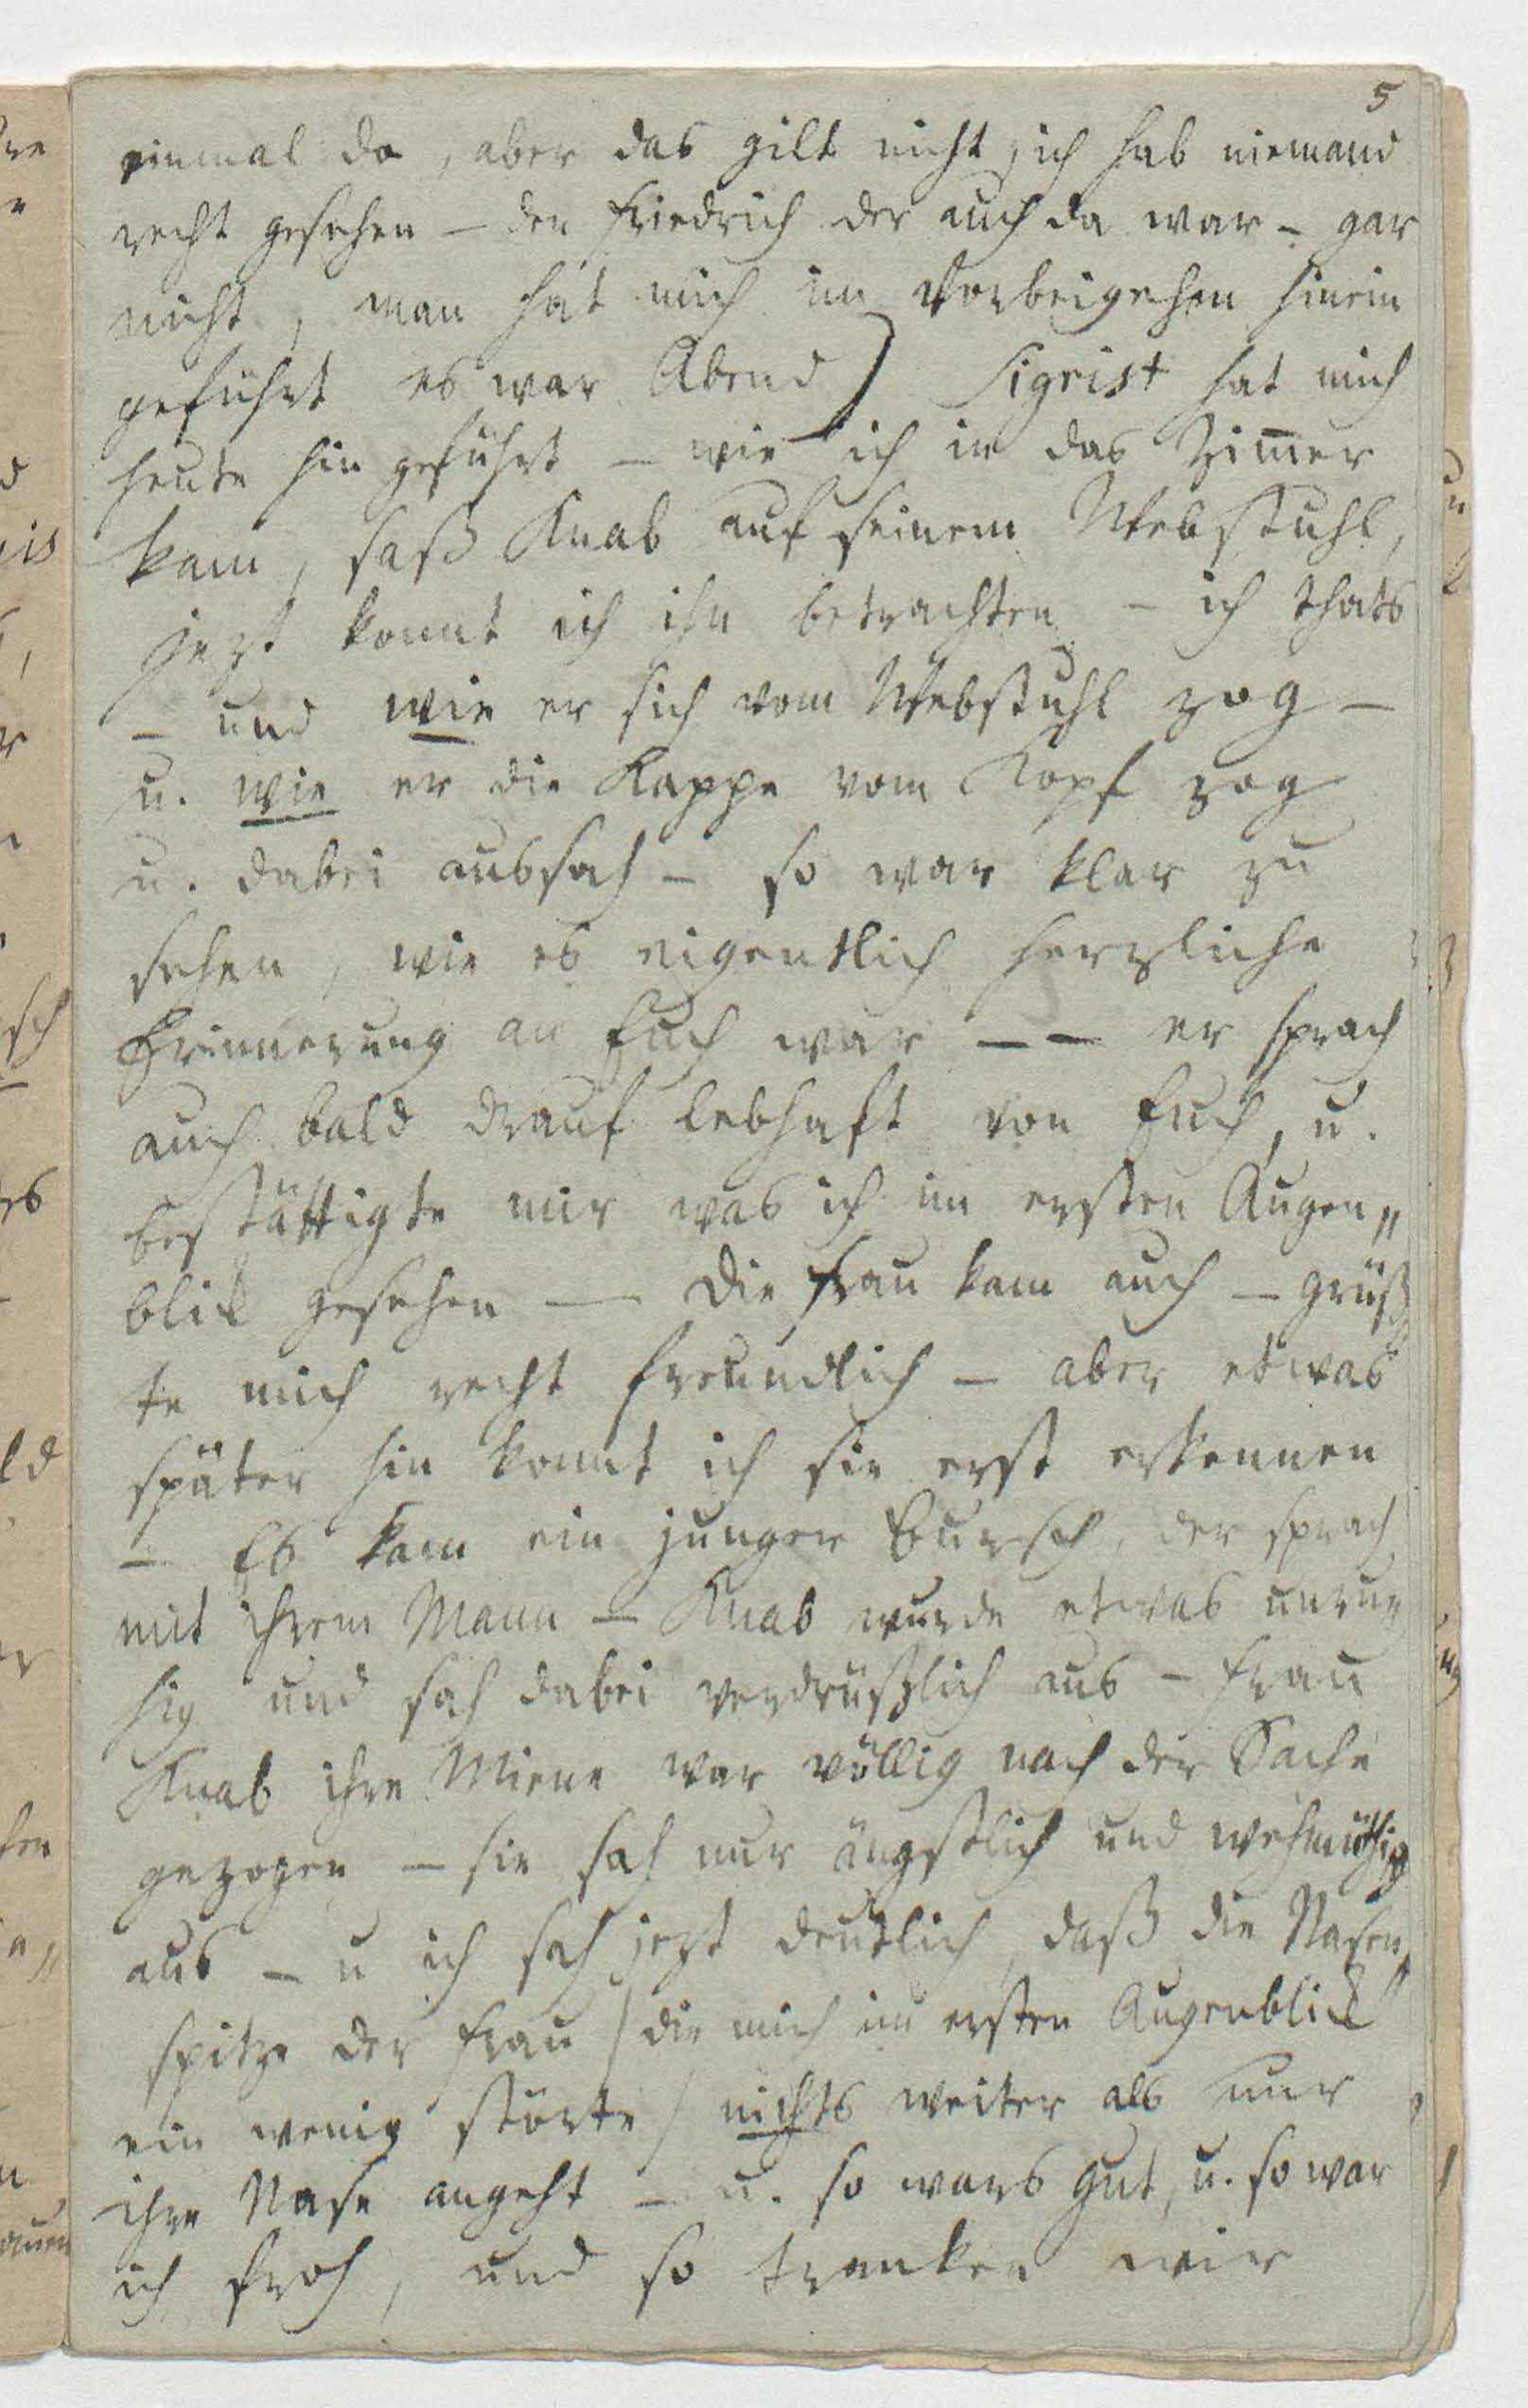 5
einmal da, aber das gilt nicht, ich hab niemand
recht gesehen – den Friedrich der auch da war – gar
nicht, man hat mich im Vorbeigehen hinein
geführt es war Abend) Sigrist hat mich
heute hin geführt – wie ich in das Zim̅er
kam, saß Knab auf seinem Webstuhl,
jezt konnt ich ihn betrachten – ich thats
– und wie er sich vom Webstuhl zog –
u. wie er die Kappe vom Kopf zog
u. dabei aussah – so war klar zu
sehen, wie es eigentlich herzliche
Erinnerung an Euch war – – er sprach
auch bald drauf lebhaft von Euch, u.
bestättigte mir was ich im ersten Augen„
blick gesehen — die Frau kam auch – grüß„
te mich recht freundlich – aber etwas
später hin konnt ich sie erst erkennen
– Es kam ein junger Bursch, der sprach
mit ihrem Mann – Knab wurde etwas unru„
hig und sah dabei verdrüßlich aus – Frau
Knab ihre Miene war völlig nach der Sache
gezogen – sie sah nur ängstlich und wehmüthig
aus – u ich sah jezt deutlich, daß die Nasen„
spitze der Frau (die mich im ersten Augenblick
ein wenig störte) nichts weiter als nur
ihre Nase angeht – u. so wars gut, u. so war
ich froh, und so tranken wir